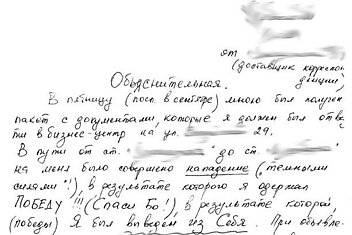 от
(доставщик корреспон
денции)
Объяснительная.
В пятницу (посл. в сентябре) мною был получен
пакет с документами, которые я должен был отвез
ти в бизнес-центр на ул. 29.
В пути от ст. " " до ст. " "
на меня было совершено нападение ("темными
силами"!), в результате которого я одержал
ПОБЕДУ!!! (Спаси Бо!) в результате которой
(победы) Я был выведен из Себя. При объявле-